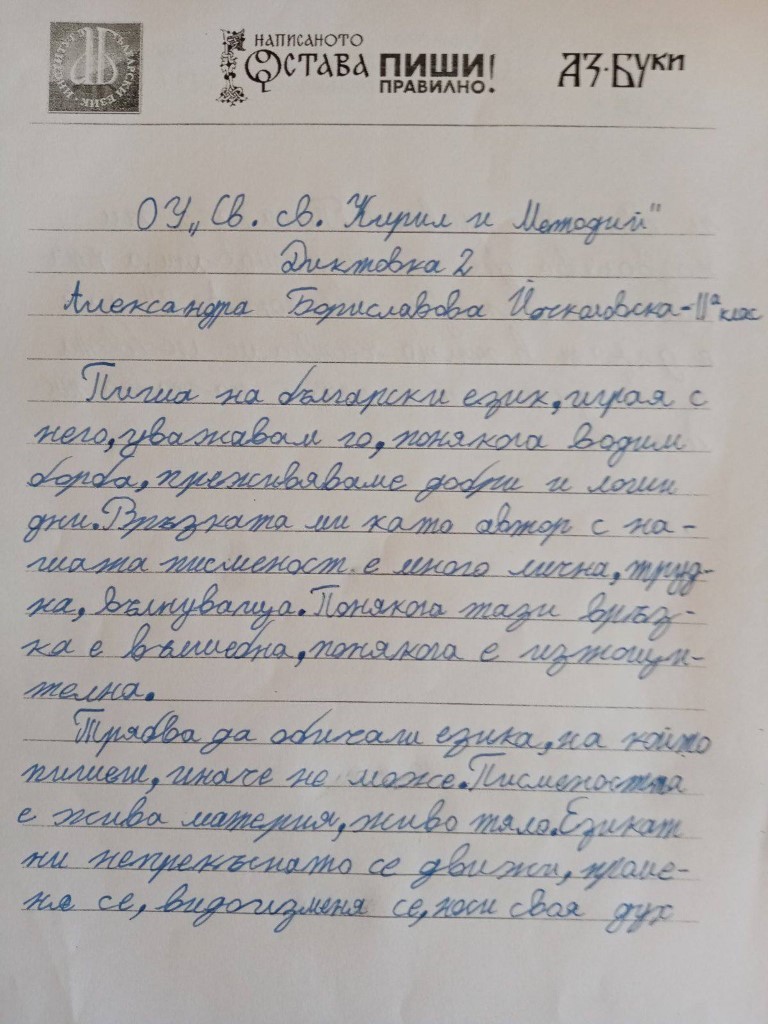 ИНСТИТУТ ЗА БЪЛГАРСКИ ЕЗИК
НАПИСАНОТО ОСТАВА ПИШИ ПРАВИЛНО!
АЗ·БУКИ
ОУ „Св. св. Кирил и Методий"
Диктовка 2
Александра Бориславова - IIа клас
Пиша на български език, играя с
него, уважавам го, понякога водим
борба, преживяваме добри и лоши
дни. Връзката ми като автор с на-
шата писменост е много лична, труд-
на, вълнуваща. Понякога тази връз-
ка е вълшебна, понякога е изтощи-
телна.
Трябва да обичаш езика, на който
пишеш, иначе не може. Писмеността
е жива материя, живо тяло. Езикат
ни непрекъснато се движи, проме-
ня се, видоизменя се, носи своя дух